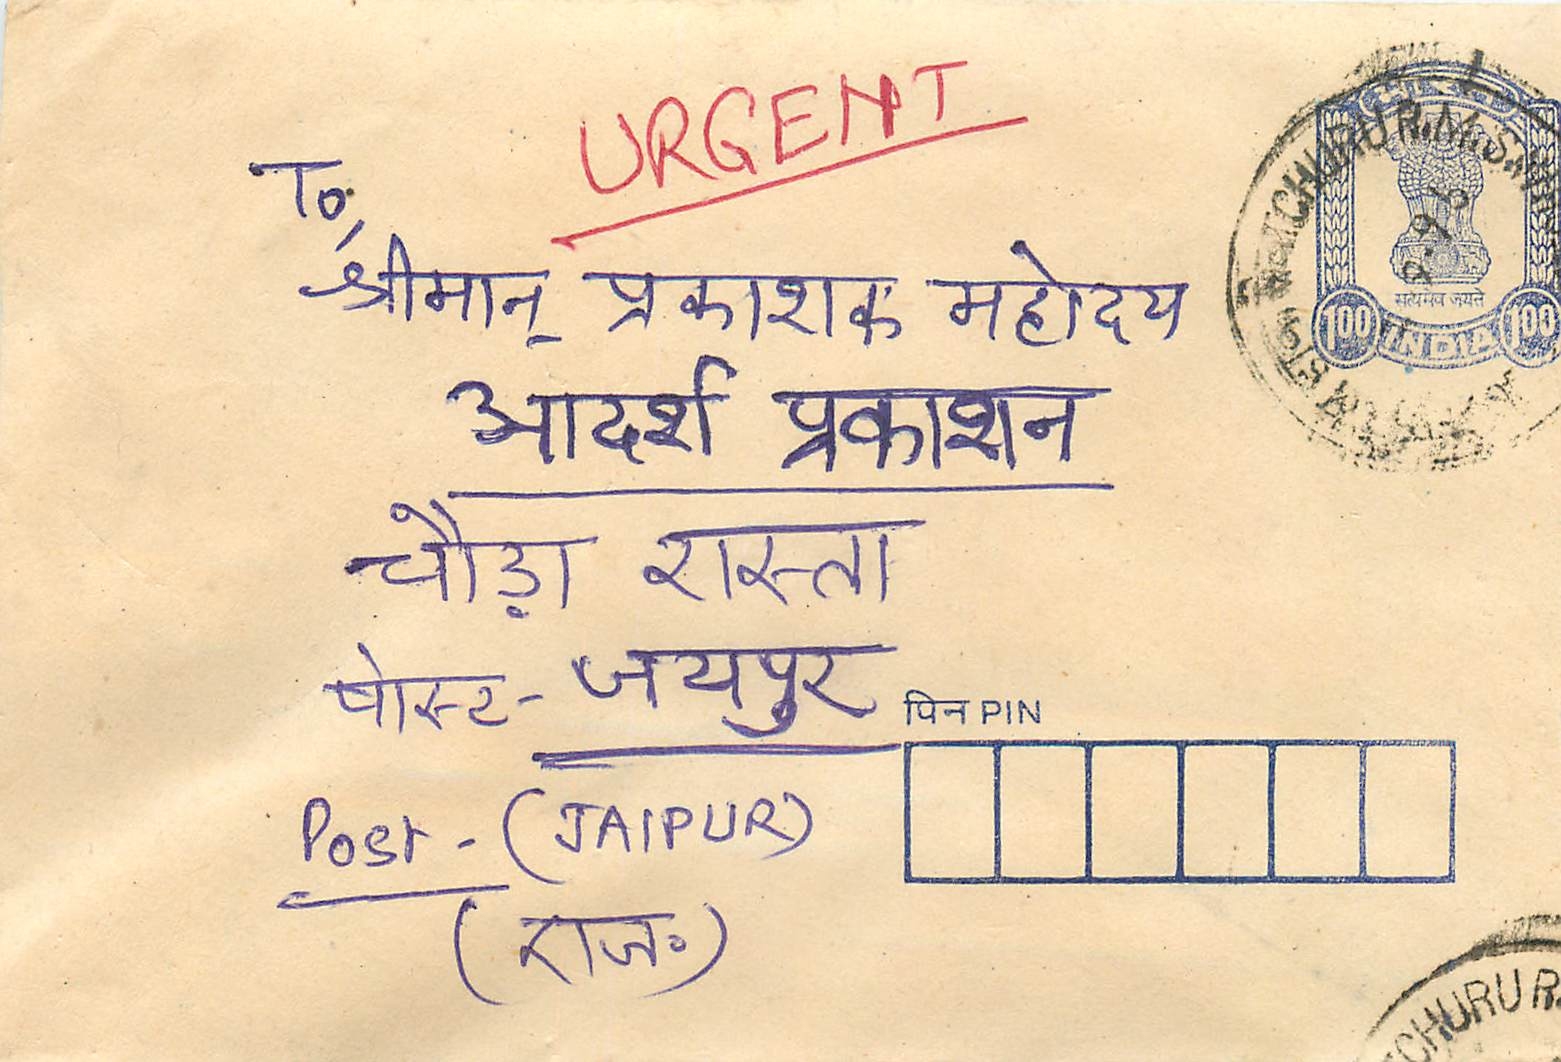 URGENT
To,
श्रीमान् प्रकाशक महोदय
आदर्श प्रकाशन
चौड़ा रास्ता
पोस्ट - जयपुर
Post - (JAIPUR)
(राज॰)
पिन PIN
भारत
सत्यमेव जयते
1.00 INDIA 1.00
CHURU R.M.S.
CHURU R.